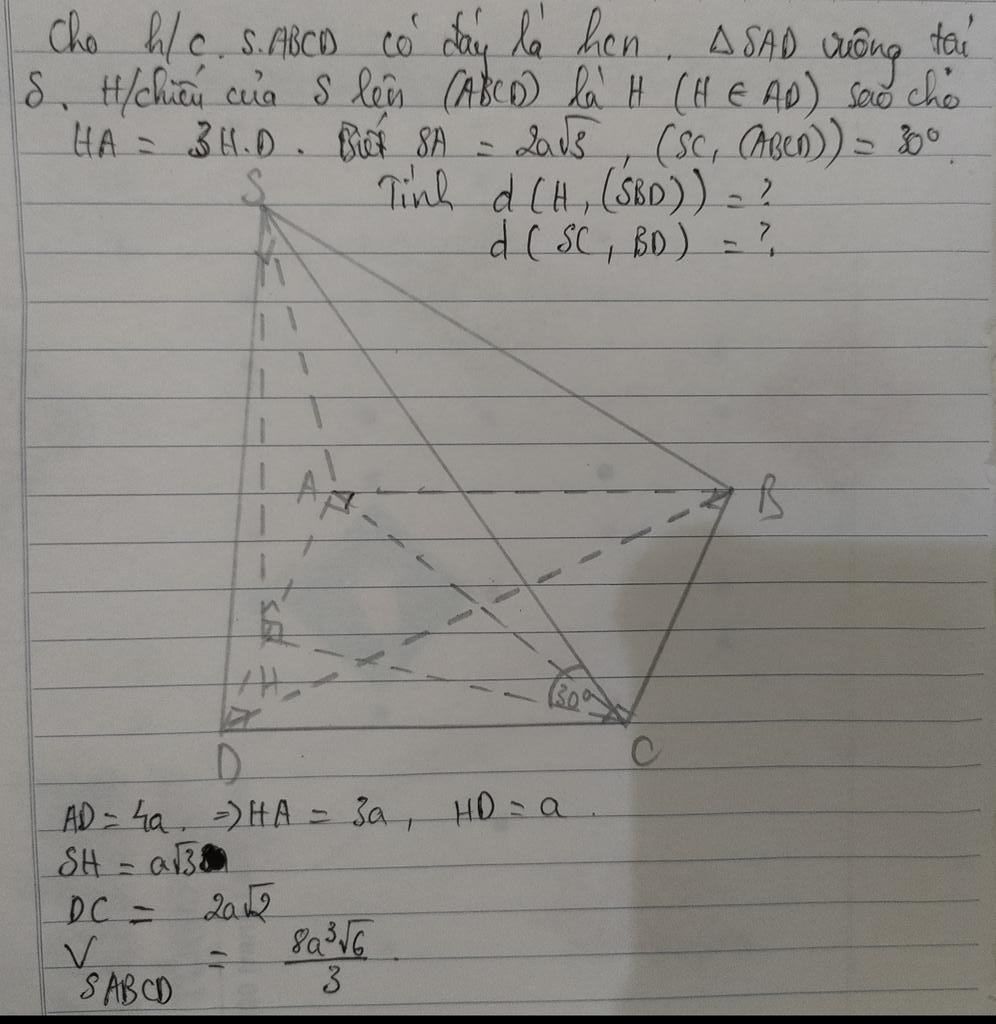 Cho h/c S.ABCD có đáy là hcn. ΔSAD vuông tại
S. H/chiếu của S lên (ABCD) là H (H ∈ AD) sao cho
HA = 3H.D. Biết SA = 2a√3, (SC, (ABCD)) = 30°.
Tính d(H, (SBD)) = ?
d(SC, BD) = ?
S
A
B
H
30°
D
C
AD = 4a. ⇒ HA = 3a, HD = a.
SH = a√3
DC = 2a√2
V SABCD = 8a³√6 / 3.